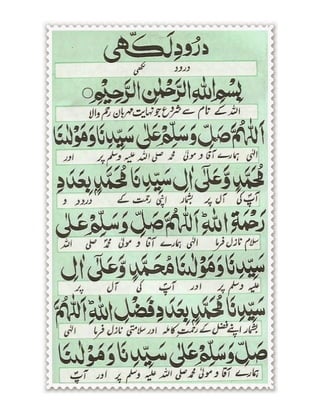 درودِ لَکھّی
درود لکھی
بِسْمِ اللهِ الرَّحْمٰنِ الرَّحِيْمِ
اللہ کے نام سے شروع جو نہایت مہربان رحم والا
اَللّٰهُمَّ صَلِّ وَسَلِّمْ عَلٰى سَيِّدِنَا وَمَوْلٰنَا
الٰہی ہمارے آقا و مولیٰ محمد صلی اللہ علیہ وسلم پر اور
مُحَمَّدٍ وَّعَلٰى اٰلِ سَيِّدِنَا مُحَمَّدٍ بِعَدَدِ
آپ کی آل پر بشمار اپنی رحمت کے درود و
رَحْمَةِ اللهِ اَللّٰهُمَّ صَلِّ وَسَلِّمْ عَلٰى
سلام نازل فرما الٰہی ہمارے آقا و مولیٰ محمد صلی اللہ
سَيِّدِنَا وَمَوْلٰنَا مُحَمَّدٍ وَّعَلٰى اٰلِ
علیہ وسلم پر اور آپ کی آل پر
سَيِّدِنَا مُحَمَّدٍ بِعَدَدِ فَضْلِ اللهِ اَللّٰهُمَّ
بشمار اپنے فضل کے رحمت کاملہ اور سلامتی نازل فرما الٰہی
صَلِّ وَسَلِّمْ عَلٰى سَيِّدِنَا وَمَوْلٰنَا
ہمارے آقا و مولیٰ محمد صلی اللہ علیہ وسلم پر اور آپ